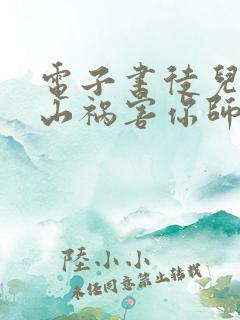 電子書徒兒
山禍害你師
陸小小
未經同意禁止轉載